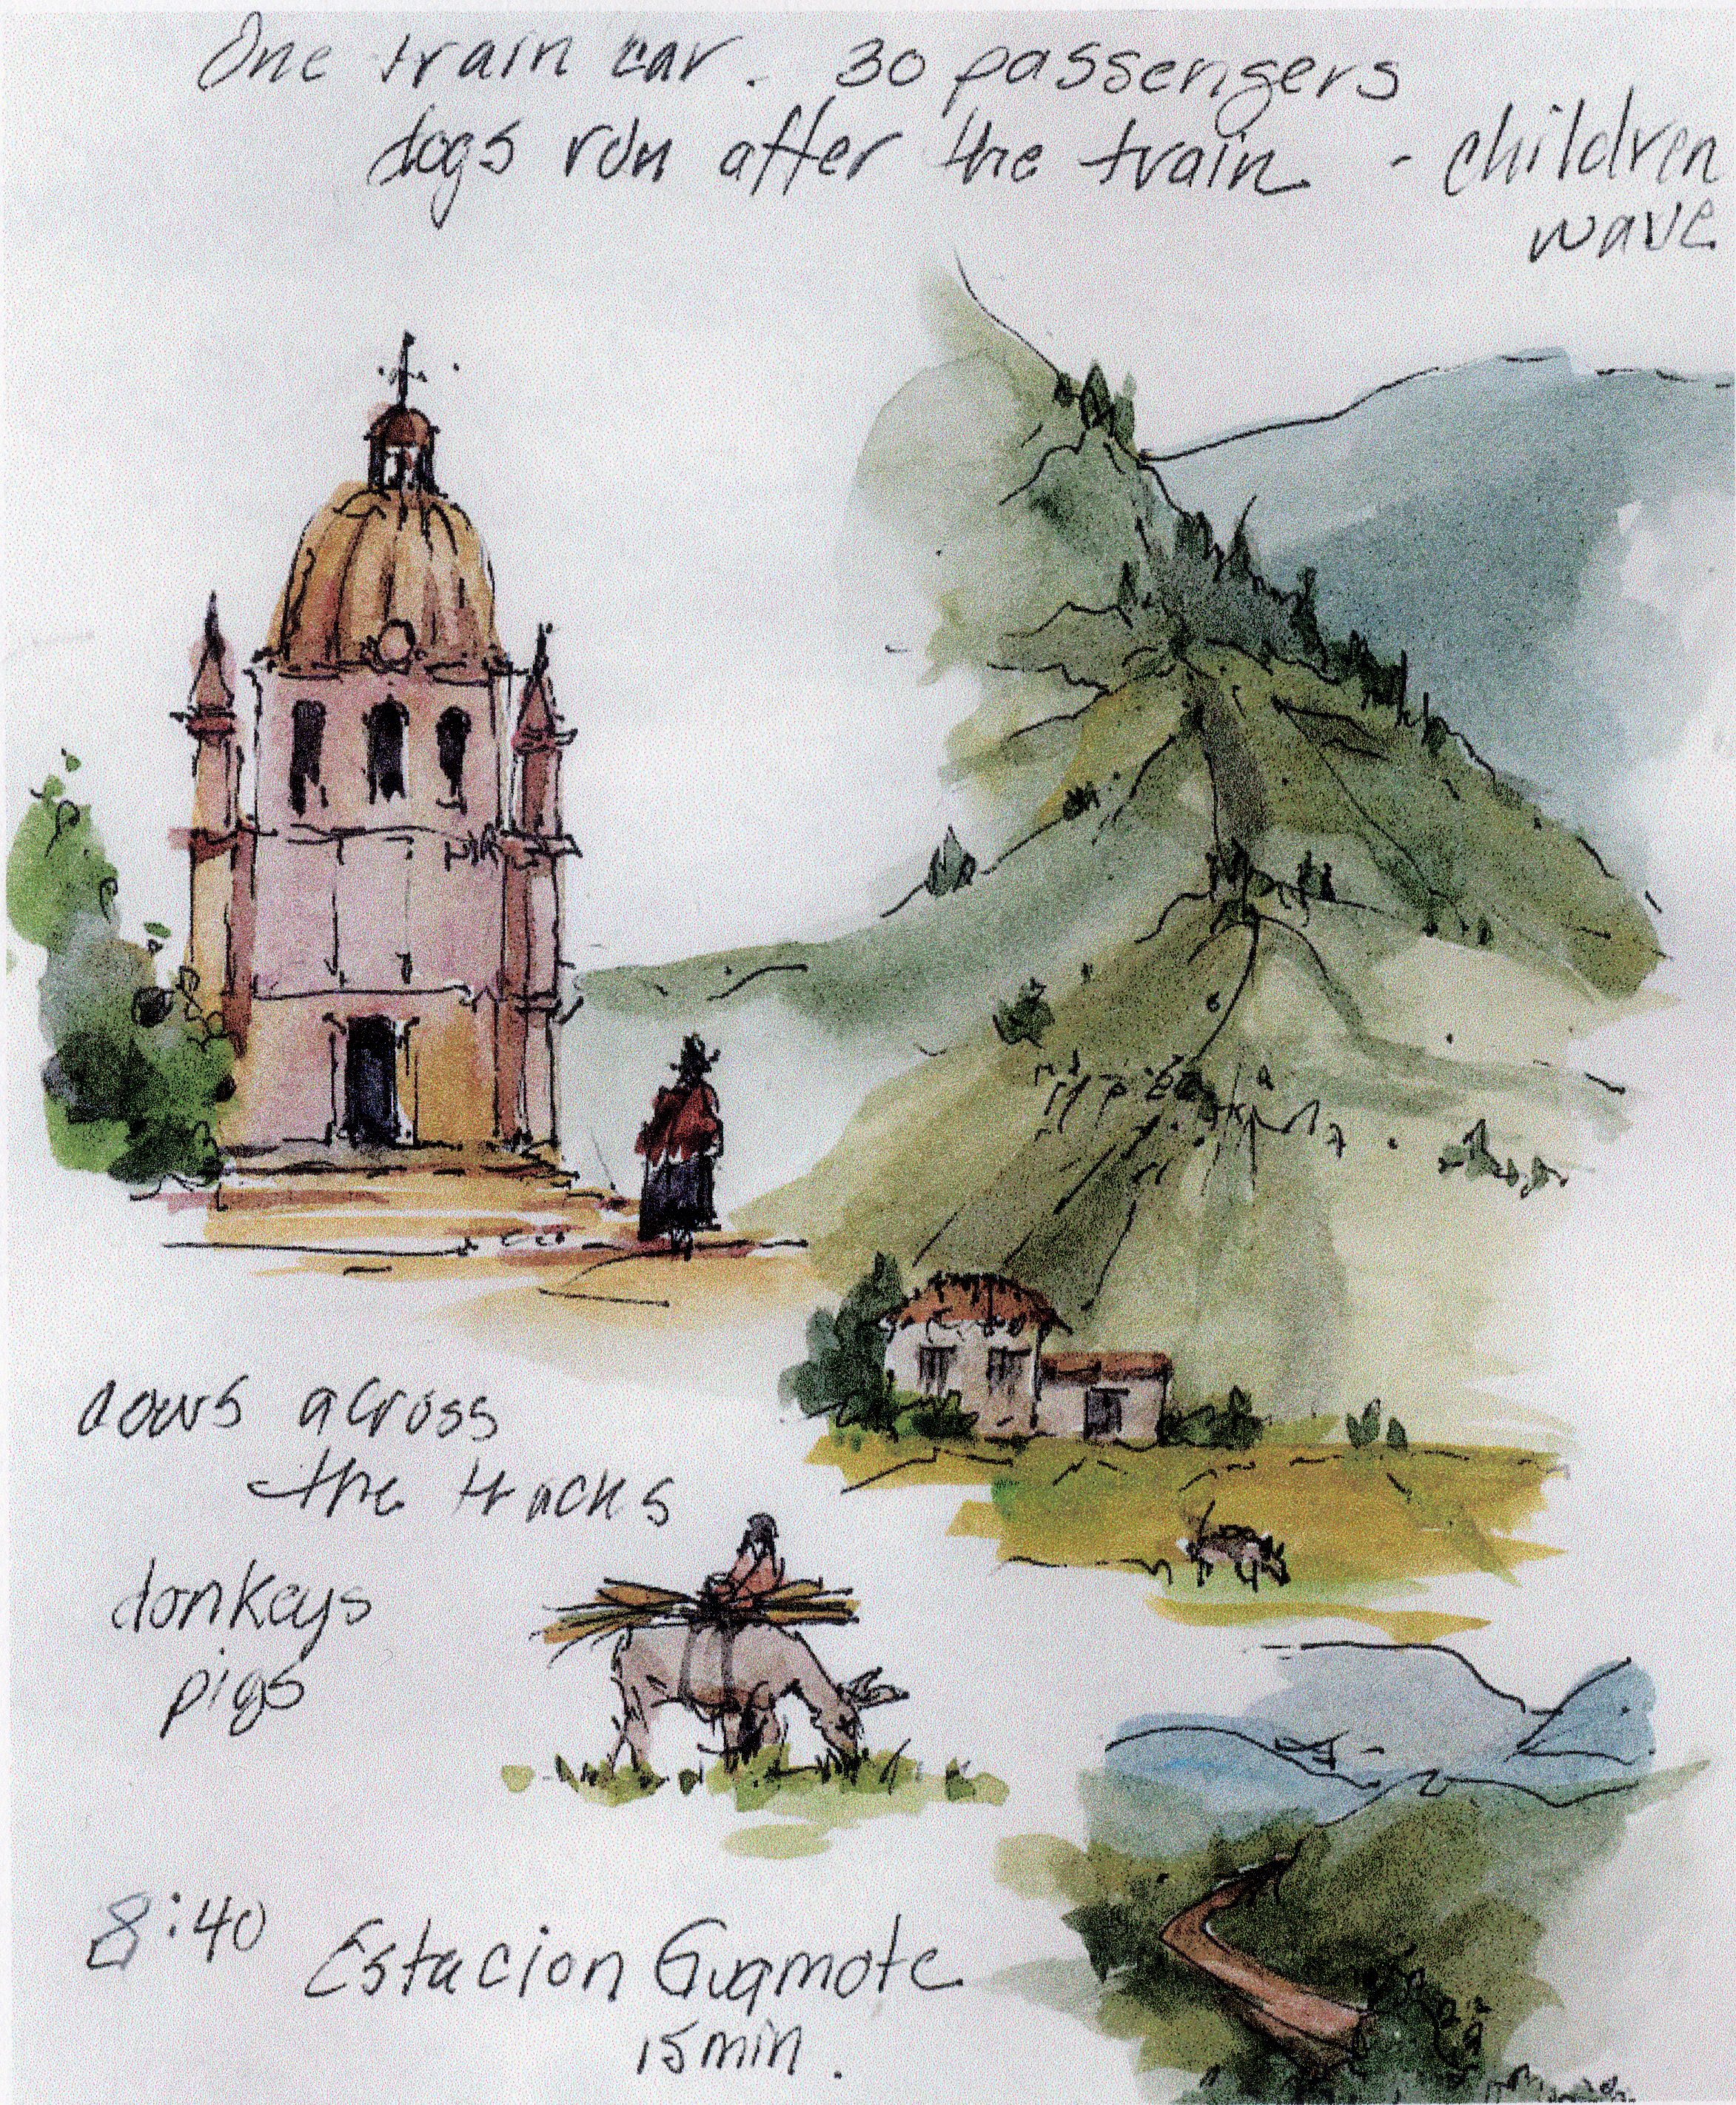 One train car. 30 passengers
dogs run after the train - children
wave
cows across
the tracks
donkeys
pigs
8:40 Estacion Guamote
15 min.